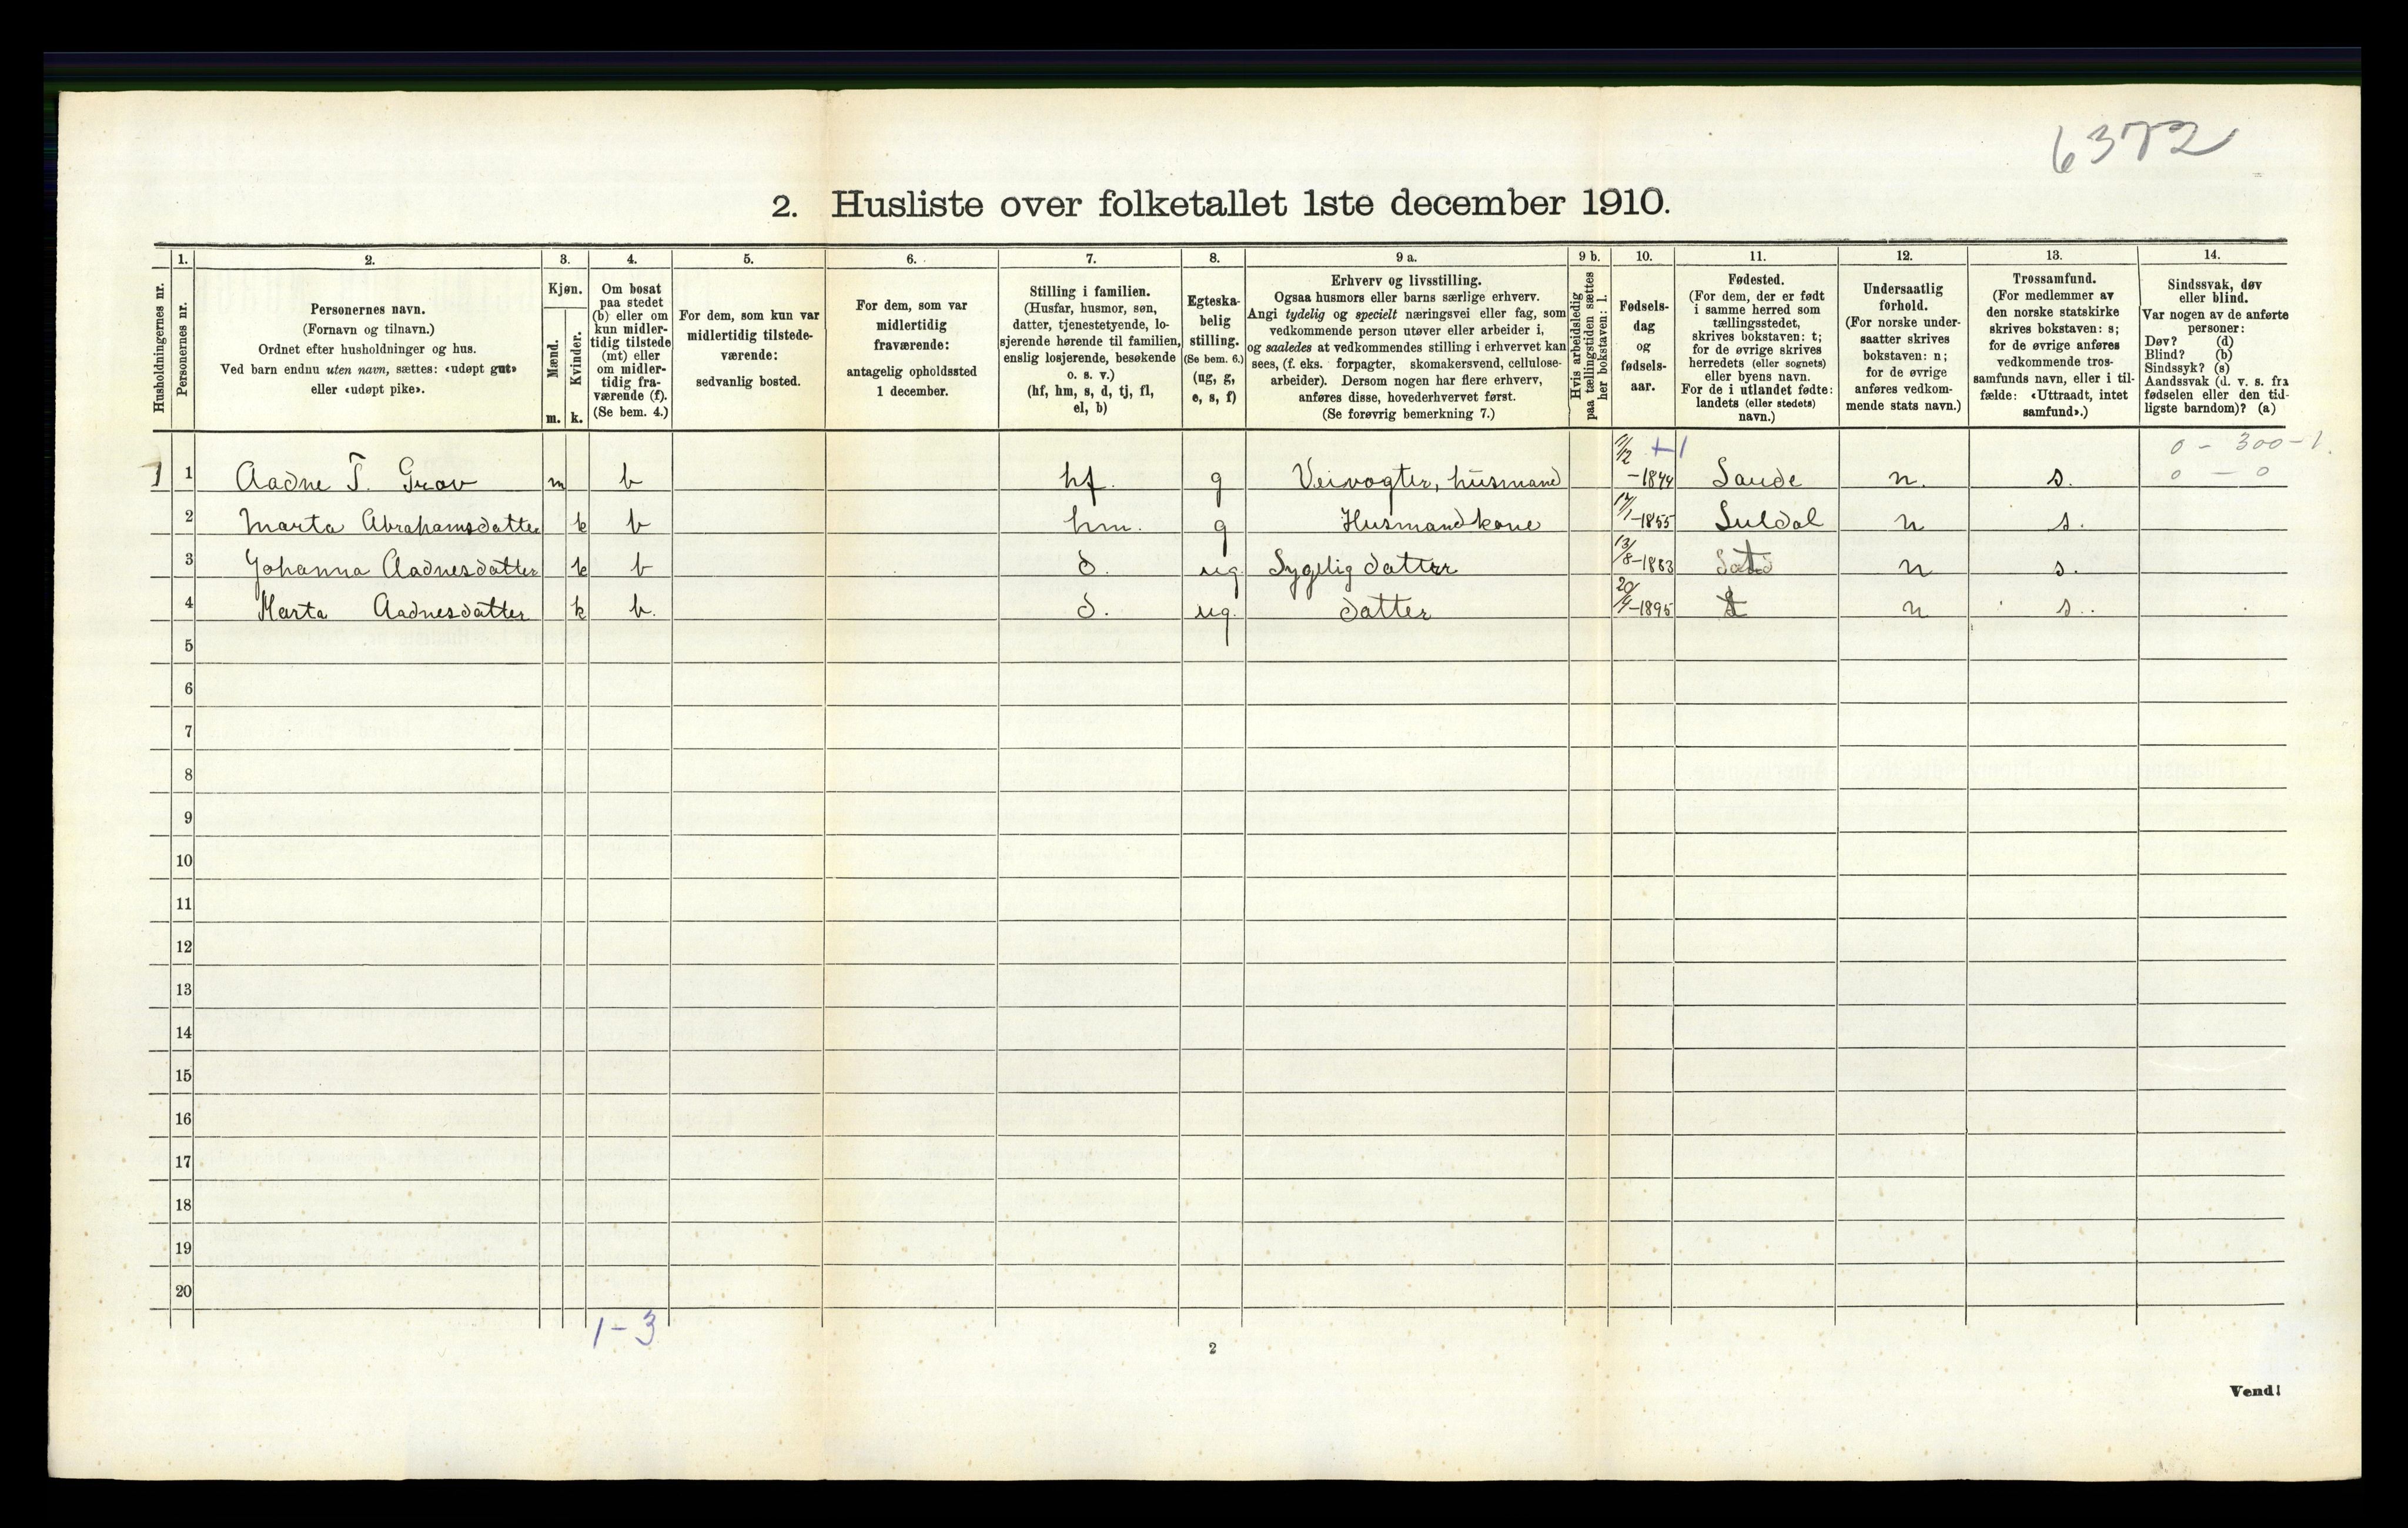 6372
2. Husliste over folketallet 1ste december 1910.
Husholdningernes nr.
1.
Personernes nr.
2.
Personernes navn.
(Fornavn og tilnavn.)
Ordnet efter husholdninger og hus.
Ved barn endnu uten navn, sættes: «udøpt gut»
eller «udøpt pike».
3.
Kjøn.
Mænd.
Kvinder.
m. k.
4.
Om bosat
paa stedet
(b) eller om
kun midler-
tidig tilstede
(mt) eller
om midler-
tidig fra-
værende (f).
(Se bem. 4.)
5.
For dem, som kun var
midlertidig tilstede-
værende:
sedvanlig bosted.
6.
For dem, som var
midlertidig
fraværende:
antagelig opholdssted
1 december.
7.
Stilling i familien.
(Husfar, husmor, søn,
datter, tjenestetyende, lo-
sjerende hørende til familien,
enslig losjerende, besøkende
o. s. v.)
(hf, hm, s, d, tj, fl,
el, b)
8.
Egteska-
belig
stilling.
(Se bem. 6.)
(ug, g,
e, s, f)
9 a.
Erhverv og livsstilling.
Ogsaa husmors eller barns særlige erhverv.
Angi tydelig og specielt næringsvei eller fag, som
vedkommende person utøver eller arbeider i,
og saaledes at vedkommendes stilling i erhvervet kan
sees, (f. eks. forpagter, skomakersvend, cellulose-
arbeider). Dersom nogen har flere erhverv,
anføres disse, hovederhvervet først.
(Se forøvrig bemerkning 7.)
9 b.
Hvis arbeidsledig
paa tællingstiden sættes
her bokstaven: l.
10.
Fødsels-
dag
og
fødsels-
aar.
11.
Fødested.
(For dem, der er født
i samme herred som
tællingsstedet,
skrives bokstaven: t;
for de øvrige skrives
herredets (eller sognets)
eller byens navn.
For de i utlandet fødte:
landets (eller stedets)
navn.)
12.
Undersaatlig
forhold.
(For norske under-
saatter skrives
bokstaven: n;
for de øvrige
anføres vedkom-
mende stats navn.)
13.
Trossamfund.
(For medlemmer av
den norske statskirke
skrives bokstaven: s;
for de øvrige anføres
vedkommende tros-
samfunds navn, eller i til-
fælde: «Uttraadt, intet
samfund».)
14.
Sindssvak, døv
eller blind.
Var nogen av de anførte
personer:
Døv? (d)
Blind? (b)
Sindssyk? (s)
Aandssvak (d. v. s. fra
fødselen eller den tid-
ligste barndom)? (a)
+1 0 - 300 - 1.
1 1 Aadne T. Grov m b hf. g Veivogter, husmand -1844 Saude n. s. 0 - 0
2 Marta Abrahamsdatter k b hm. g Husmandkone -1855 Suldal n s.
3 Johanna Aadnesdatter k b d. ug. Sygelig datter 13/8-1883 n s.
4 Marta Aadnesdatter k b. d. ug. datter 20/4-1895 t n s.
5
6
7
8
9
10
11
12
13
14
15
16
17
18
19
20
1-3
2
Vend!